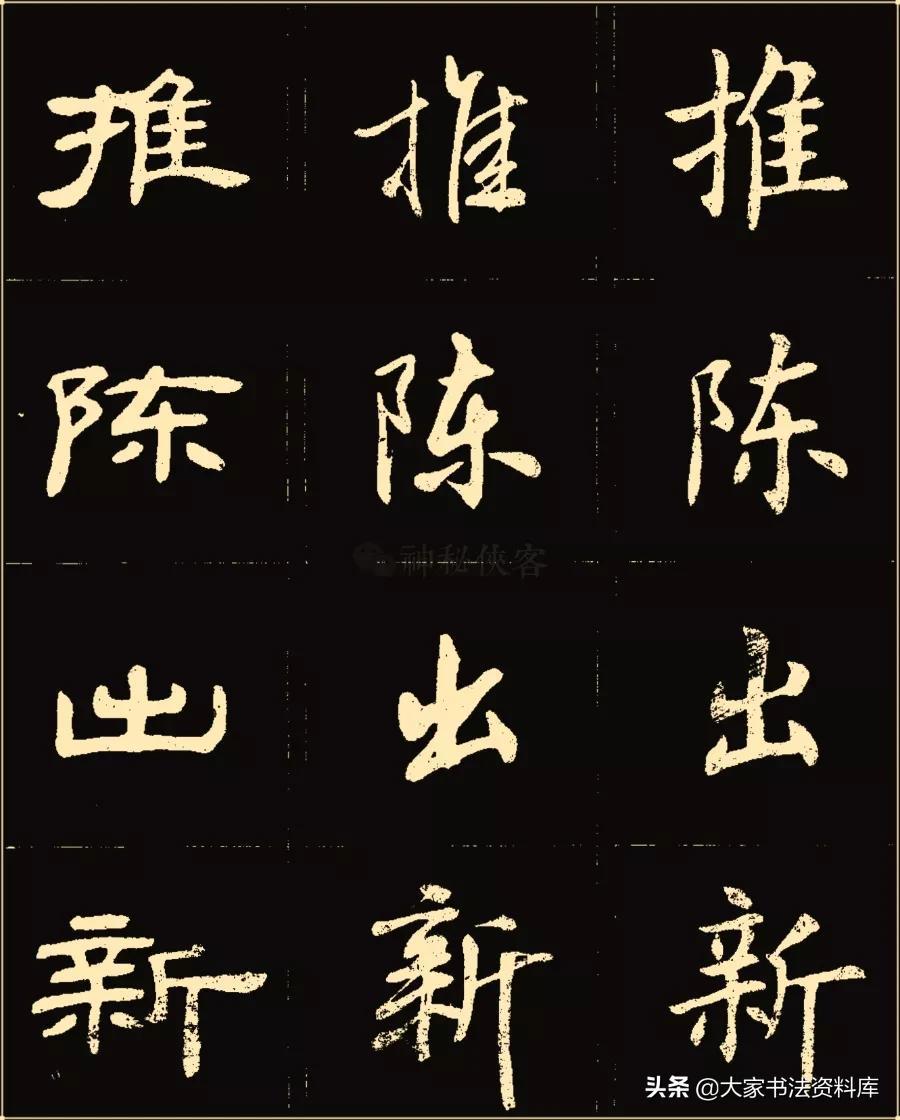 推 推 推
陈 陈 陈
神秘侠客
出 出 出
新 新 新
头条 @大家书法资料库